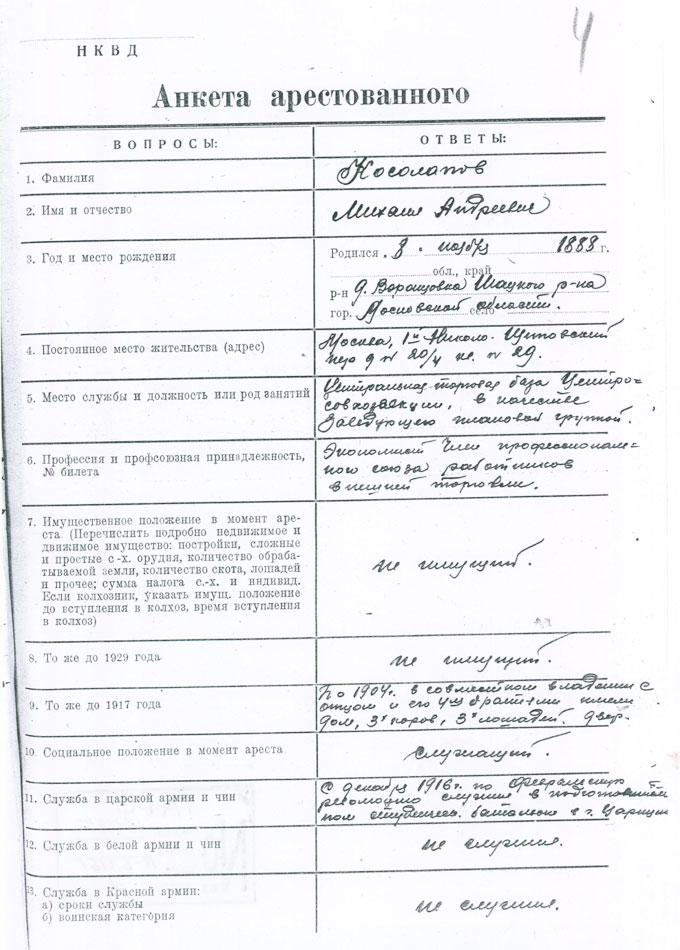 4
НКВД
Анкета арестованного
ВОПРОСЫ:
ОТВЕТЫ:
1. Фамилия
Косолапов
2. Имя и отчество
Михаил Андреевич
3. Год и место рождения
Родился 8 ноября 1888 г.
обл., край
р-н д. Воронцовка Шацкого р-на
гор. Московской области. село
4. Постоянное место жительства (адрес)
Москва, 1й Николо-Щеповский
пер д № 20/4 кв. № 29.
5. Место службы и должность или род занятий
Центральная торговая база Центро-
совхозсекции, в качестве
Заведующего плановой группой.
6. Профессия и профсоюзная принадлежность,
№ билета
Экономист Член профессиональ-
ного союза работников
внешней торговли.
7. Имущественное положение в момент аре-
ста. (Перечислить подробно недвижимое и
движимое имущество: постройки, сложные
и простые с.-х. орудия, количество обраба-
тываемой земли, количество скота, лошадей
и прочее; сумма налога с.-х. и индивид.
Если колхозник, указать имущ. положение
до вступления в колхоз, время вступления
в колхоз)
не имущий.
8. То же до 1929 года.
не имущий.
9. То же до 1917 года
По 1904г. в совместном владении с
отцом и его 4мя братьями имели
дом, 3х коров, 3х лошадей.
10. Социальное положение в момент ареста
Служащий.
11. Служба в царской армии и чин
С декабря 1916г. по февральскую
революцию служил в подготовитель
ном студенческ. батальоне в г. Царицыне
12. Служба в белой армии и чин
не служил.
13. Служба в Красной армии:
а) сроки службы
б) воинская категория
не служил.